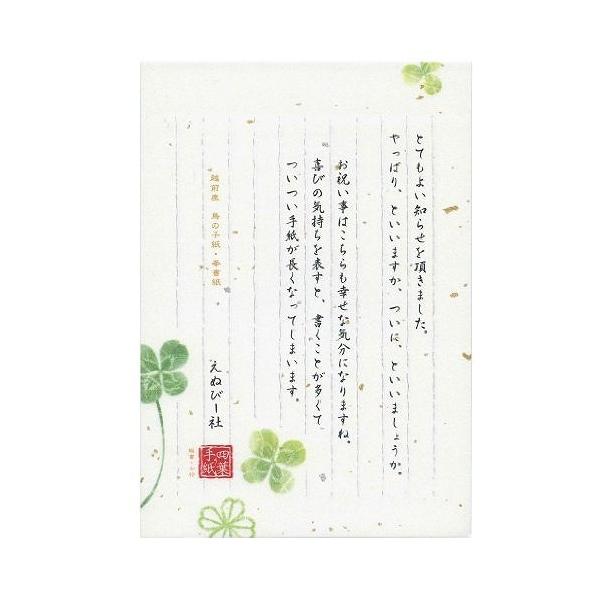 とてもよい知らせを頂きました。
やっぱり、といいますか、ついに、といいましょうか。
お祝い事はこちらも幸せな気分になりますね。
喜びの気持ちを表すと、書くことが多くて
ついつい手紙が長くなってしまいます。
越前産 鳥の子紙・奉書紙
えぬびー社
四葉
手紙